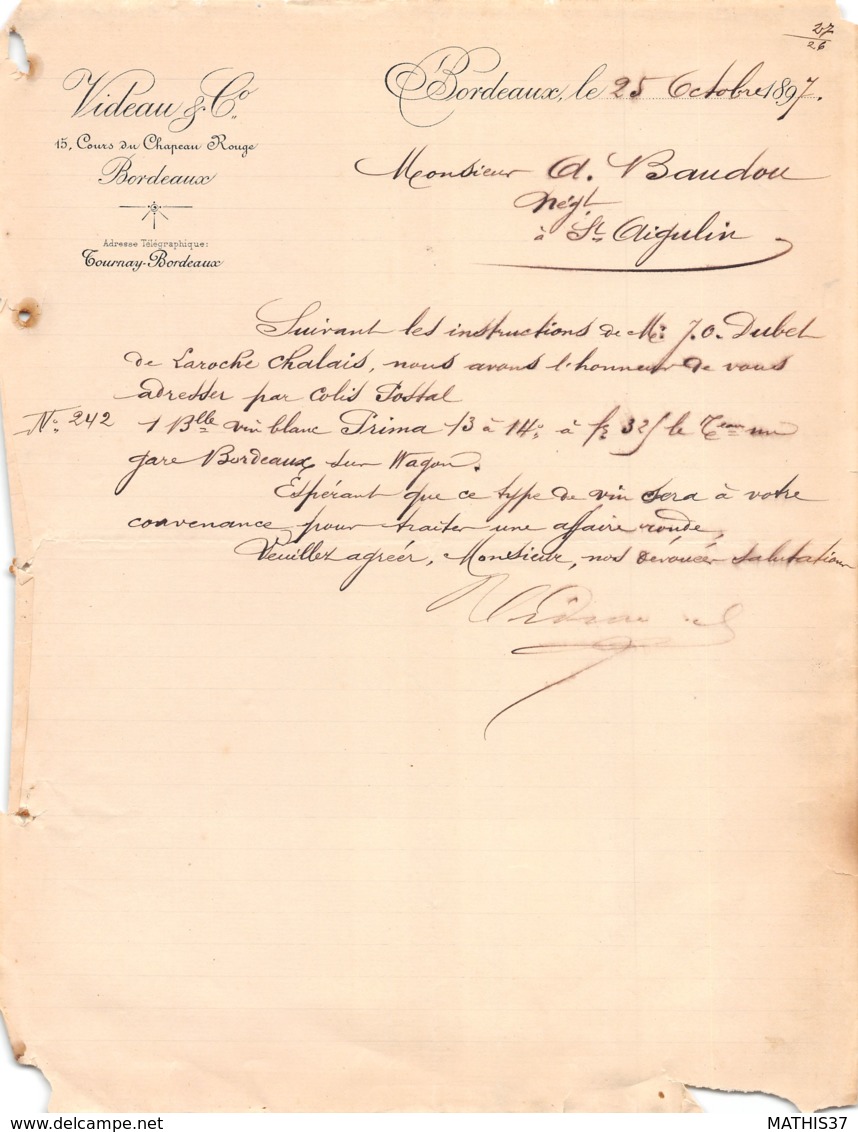 27
26
Videau & Co
15, Cours du Chapeau Rouge
Bordeaux
Adresse Télégraphique:
Tournay-Bordeaux
Bordeaux, le 25 Octobre 1897.
Monsieur A. Baudou
Négt
à St Aigulin
Suivant les instructions de Mr J. O. Dubet
de Laroche Chalais, nous avons l'honneur de vous
adresser par colis Postal
No 242 1 Blle vin blanc Prima 13 à 14° à fs 325 le Teau nu
gare Bordeaux sur Wagon.
Espérant que ce type de vin sera à votre
convenance pour traiter une affaire ronde,
Veuillez agréer, Monsieur, nos dévouées salutations
Videau
MATHIS37